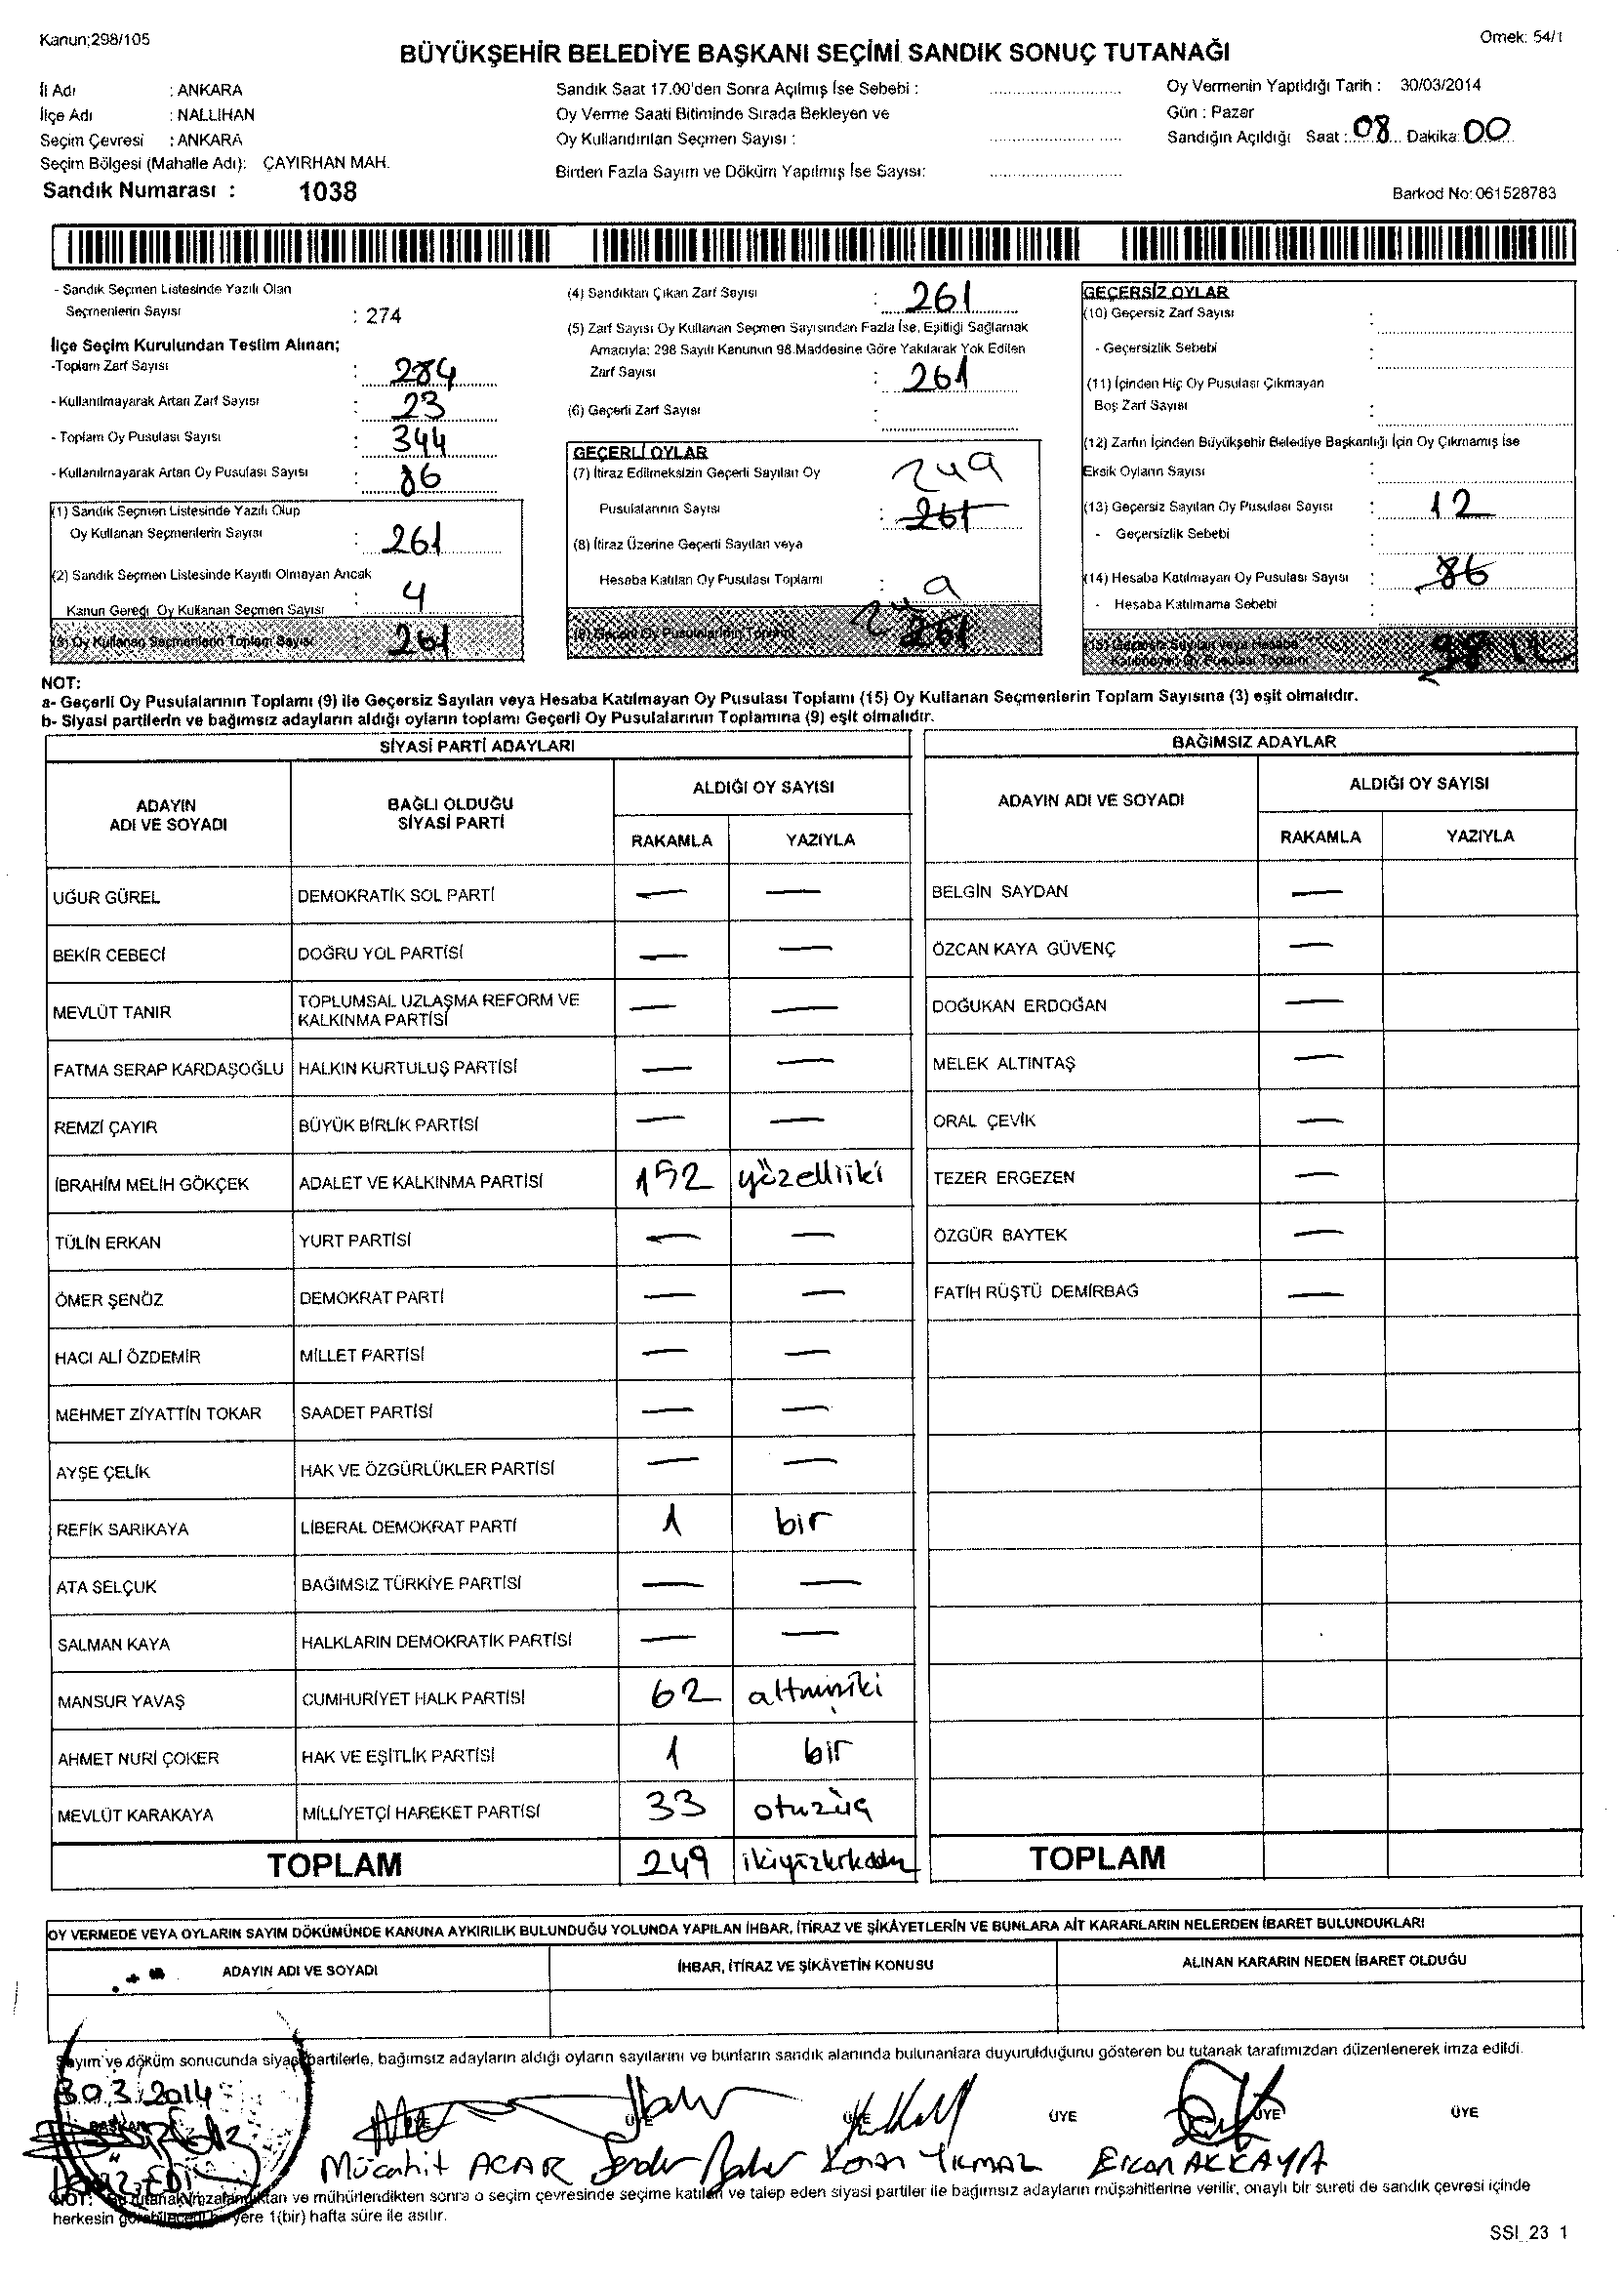 Kanun;298/105
Örnek: 54/1
BÜYÜKŞEHİR BELEDİYE BAŞKANI SEÇİMİ SANDIK SONUÇ TUTANAĞI
İl Adı : ANKARA
İlçe Adı : NALLIHAN
Seçim Çevresi : ANKARA
Seçim Bölgesi (Mahalle Adı): ÇAYIRHAN MAH.
Sandık Numarası : 1038
Sandık Saat 17.00'den Sonra Açılmış İse Sebebi :
Oy Verme Saati Bitiminde Sırada Bekleyen ve
Oy Kullandırılan Seçmen Sayısı :
Birden Fazla Sayım ve Döküm Yapılmış İse Sayısı:
Oy Vermenin Yapıldığı Tarih : 30/03/2014
Gün : Pazar
Sandığın Açıldığı Saat : 08 Dakika: 00
Barkod No: 061528783
- Sandık Seçmen Listesinde Yazılı Olan
Seçmenlerin Sayısı : 274
İlçe Seçim Kurulundan Teslim Alınan;
-Toplam Zarf Sayısı : 284
- Kullanılmayarak Artan Zarf Sayısı : 23
- Toplam Oy Pusulası Sayısı : 344
- Kullanılmayarak Artan Oy Pusulası Sayısı : 86
(1) Sandık Seçmen Listesinde Yazılı Olup
Oy Kullanan Seçmenlerin Sayısı : 261
(2) Sandık Seçmen Listesinde Kayıtlı Olmayan Ancak
Kanun Gereği Oy Kullanan Seçmen Sayısı : 4
(3) Oy Kullanan Seçmenlerin Toplam Sayısı : 261
(4) Sandıktan Çıkan Zarf Sayısı : 261
(5) Zarf Sayısı Oy Kullanan Seçmen Sayısından Fazla İse, Eşitliği Sağlamak
Amacıyla; 298 Sayılı Kanunun 98.Maddesine Göre Yakılarak Yok Edilen
Zarf Sayısı : 261
(6) Geçerli Zarf Sayısı :
GEÇERLİ OYLAR
(7) İtiraz Edilmeksizin Geçerli Sayılan Oy 249
Pusulalarının Sayısı : 261
(8) İtiraz Üzerine Geçerli Sayılan veya
Hesaba Katılan Oy Pusulası Toplamı :
(9) Geçerli Oy Pusulalarının Toplamı 261
GEÇERSİZ OYLAR
(10) Geçersiz Zarf Sayısı :
- Geçersizlik Sebebi :
(11) İçinden Hiç Oy Pusulası Çıkmayan
Boş Zarf Sayısı :
(12) Zarfın İçinden Büyükşehir Belediye Başkanlığı İçin Oy Çıkmamış İse
Eksik Oyların Sayısı :
(13) Geçersiz Sayılan Oy Pusulası Sayısı : 12
- Geçersizlik Sebebi :
(14) Hesaba Katılmayan Oy Pusulası Sayısı : 86
- Hesaba Katılmama Sebebi :
(15) Geçersiz Sayılan veya Hesaba
Katılmayan Oy Pusulası Toplamı
NOT:
a- Geçerli Oy Pusulalarının Toplamı (9) ile Geçersiz Sayılan veya Hesaba Katılmayan Oy Pusulası Toplamı (15) Oy Kullanan Seçmenlerin Toplam Sayısına (3) eşit olmalıdır.
b- Siyasi partilerin ve bağımsız adayların aldığı oyların toplamı Geçerli Oy Pusulalarının Toplamına (9) eşit olmalıdır.
SİYASİ PARTİ ADAYLARI
ADAYIN ADI VE SOYADI
BAĞLI OLDUĞU SİYASİ PARTİ
ALDIĞI OY SAYISI
RAKAMLA YAZIYLA
UĞUR GÜREL DEMOKRATİK SOL PARTİ — —
BEKİR CEBECİ DOĞRU YOL PARTİSİ — —
MEVLÜT TANIR TOPLUMSAL UZLAŞMA REFORM VE KALKINMA PARTİSİ — —
FATMA SERAP KARDAŞOĞLU HALKIN KURTULUŞ PARTİSİ — —
REMZİ ÇAYIR BÜYÜK BİRLİK PARTİSİ — —
İBRAHİM MELİH GÖKÇEK ADALET VE KALKINMA PARTİSİ 152 yüzelliiki
TÜLİN ERKAN YURT PARTİSİ — —
ÖMER ŞENÖZ DEMOKRAT PARTİ — —
HACI ALİ ÖZDEMİR MİLLET PARTİSİ — —
MEHMET ZİYATTİN TOKAR SAADET PARTİSİ — —
AYŞE ÇELİK HAK VE ÖZGÜRLÜKLER PARTİSİ — —
REFİK SARIKAYA LİBERAL DEMOKRAT PARTİ 1 bir
ATA SELÇUK BAĞIMSIZ TÜRKİYE PARTİSİ — —
SALMAN KAYA HALKLARIN DEMOKRATİK PARTİSİ — —
MANSUR YAVAŞ CUMHURİYET HALK PARTİSİ 62 altmışiki
AHMET NURİ ÇOKER HAK VE EŞİTLİK PARTİSİ 1 bir
MEVLÜT KARAKAYA MİLLİYETÇİ HAREKET PARTİSİ 33 otuzüç
TOPLAM 249
BAĞIMSIZ ADAYLAR
ADAYIN ADI VE SOYADI
ALDIĞI OY SAYISI
RAKAMLA YAZIYLA
BELGİN SAYDAN —
ÖZCAN KAYA GÜVENÇ —
DOĞUKAN ERDOĞAN —
MELEK ALTINTAŞ —
ORAL ÇEVİK —
TEZER ERGEZEN —
ÖZGÜR BAYTEK —
FATİH RÜŞTÜ DEMİRBAĞ —
TOPLAM
OY VERMEDE VEYA OYLARIN SAYIM DÖKÜMÜNDE KANUNA AYKIRILIK BULUNDUĞU YOLUNDA YAPILAN İHBAR, İTİRAZ VE ŞİKÂYETLERİN VE BUNLARA AİT KARARLARIN NELERDEN İBARET BULUNDUKLARI
ADAYIN ADI VE SOYADI
İHBAR, İTİRAZ VE ŞİKÂYETİN KONUSU
ALINAN KARARIN NEDEN İBARET OLDUĞU
Sayım ve döküm sonucunda siyasi partilerle, bağımsız adayların aldığı oyların sayılarını ve bunların sandık alanında bulunanlara duyurulduğunu gösteren bu tutanak tarafımızdan düzenlenerek imza edildi.
30.3.2014
BAŞKAN ÜYE ÜYE ÜYE ÜYE ÜYE ÜYE
Mücahit ACAR
YILMAZ
Ercan AKKAYA
NOT: Bu tutanak imzalandıktan ve mühürlendikten sonra o seçim çevresinde seçime katılan ve talep eden siyasi partiler ile bağımsız adayların müşahitlerine verilir, onaylı bir sureti de sandık çevresi içinde
herkesin görebileceği bir yere 1(bir) hafta süre ile asılır.
SSI_23 1